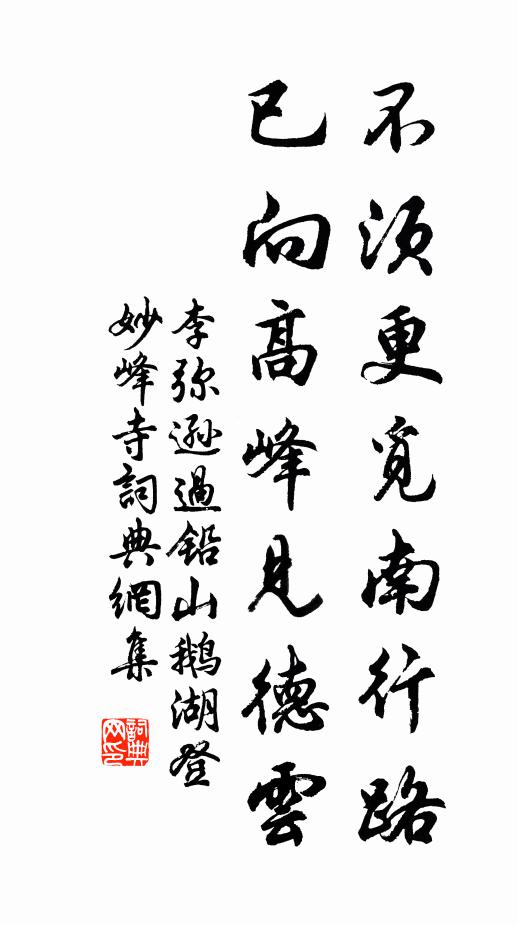 不須更覓南行路
已向高峰見德雲
李弥遜過鉛山鵝湖登
妙峰寺詞典網集
詞典
网印